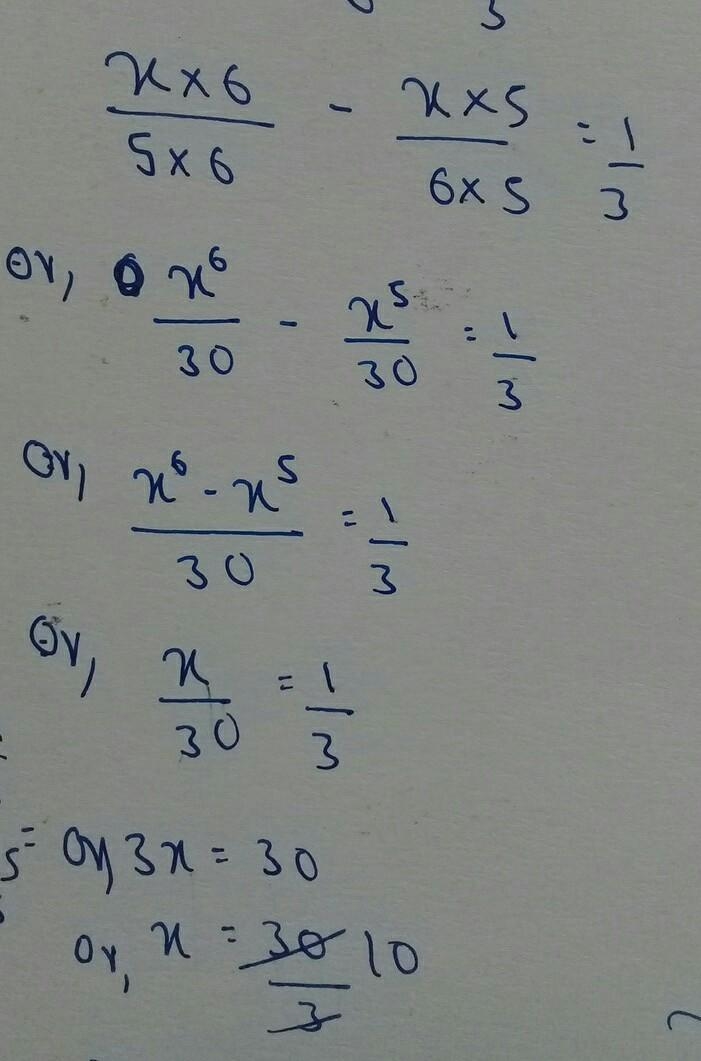 5
x×6/5×6 - x×5/6×5 = 1/3
or, x⁶/30 - x⁵/30 = 1/3
or, x⁶ - x⁵/30 = 1/3
or, x/30 = 1/3
5= or, 3x = 30
or, x = 30/3 10